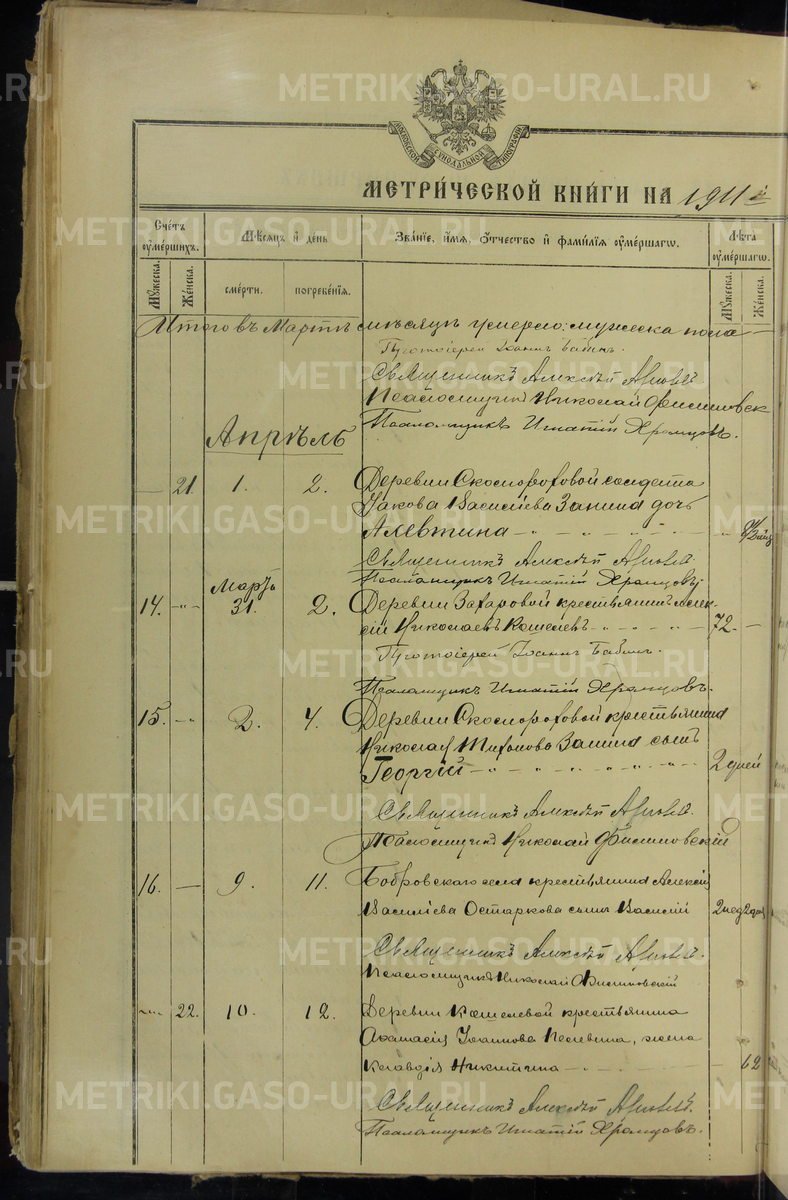 МОСКОВСКОЙ СѴНОДАЛЬНОЙ ТИПОГРАФІИ
МЕТРИ́ЧЕСКОЙ КНИ́ГИ НА 1911 й
Сче́тъ оу҆ме́ршихъ.
Мѣ́сяцъ и҆ день
Зва́нїе, и҆́мя, ѻ҆́тчество и҆ фами́лїя оу҆ме́ршагѡ.
Лѣ́та оу҆ме́ршагѡ.
Му́жеска.
Же́нска.
сме́рти.
погребе́нїя.
Му́жеска.
Же́нска.
Итого въ Мартѣ мѣсяцѣ умерло: мужеска пола —
Протоіерей Іоаннъ Бабинъ.
Священникъ Алексѣй
Псаломщикъ Николай
Псаломщикъ Игнатій Храмцовъ.
Апрѣль
— 21. 1. 2. Деревни Скомороховой солдата
Іакова Васильева Занина дочь
Алевтина
Священникъ Алексѣй
Псаломщикъ Игнатій Храмцовъ
Марта
14. —"— 31. 2. Деревни Захаровой крестьянинъ Алек-
сій Николаевъ Кошелевъ — 72. —
Протоіерей Іоаннъ Бабинъ.
Псаломщикъ Игнатій Храмцовъ.
15. —"— 2. 4. Деревни Скомороховой крестьянина
Николая Занина сынъ
Георгій — 2 дней
Священникъ Алексѣй
Псаломщикъ Николай Филиповскій
16. — 9. 11. Бобровскаго села крестьянина Алексія
Василіева Остаркова сынъ Василій 2 нед 2 дня
Священникъ Алексѣй
Псаломщикъ Николай Филиповскій
—"— 22. 10. 12. Деревни Кошелевой крестьянина
Аѳанасія Іоаннова жена
Клавдія Никитина — 62
Священникъ Алексѣй
Псаломщикъ Игнатій Храмцовъ.
METRIKI.GASO-URAL.RU